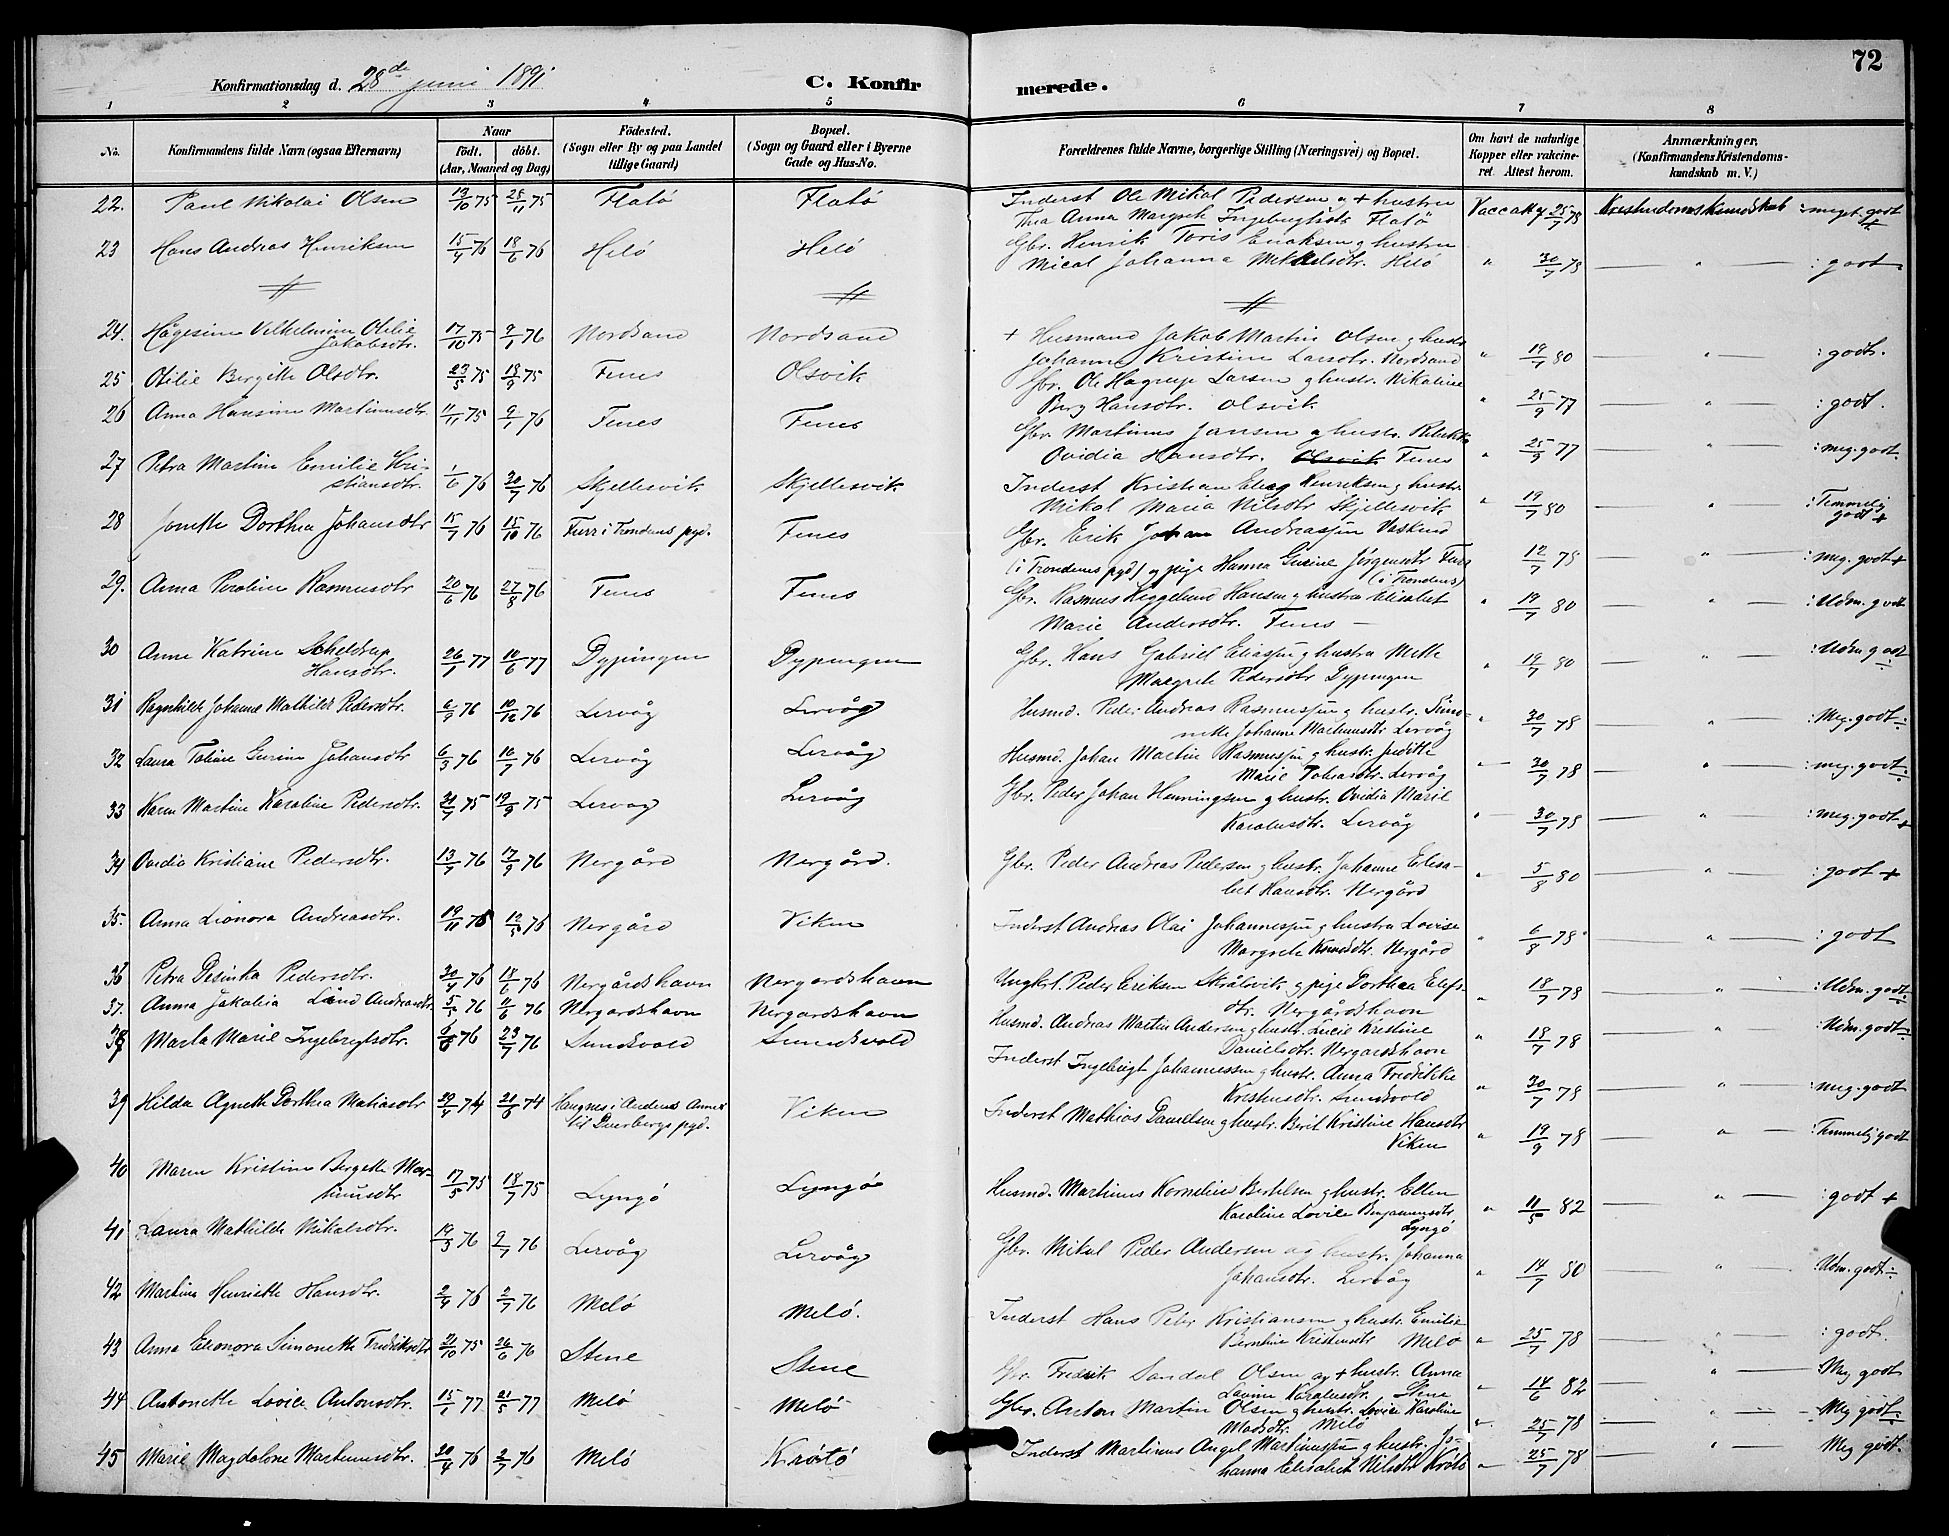 72
Konfirmationsdag d. 28de juni 1891
C. Konfirmerede.
1 2 3 4 5 6 7 8
No.
Konfirmandens fulde Navn (ogsaa Efternavn)
Naar
födt. döbt.
(Aar, Maaned og Dag)
Födested.
(Sogn eller By og paa Landet
tillige Gaard)
Bopæl.
(Sogn og Gaard eller i Byerne
Gade og Hus-No.
Forældrenes fulde Navne, borgerlige Stilling (Næringsvei) og Bopæl.
Om havt de naturlige
Kopper eller vakcine-
ret. Attest herom.
Anmærkninger.
(Konfirmandens Kristendoms-
kundskab m. V.)
22. Paul Nikolai Olsen 13/10 75 28/11 75 Flatö Flatö Inderst Ole Mikal Pedersen og + hustru
Thea Anna Margrete Ingebrigtsdtr Flatö Vacc att 25/7 78 Kristendomskundskab : meget godt +
23 Hans Andreas Henriksen 15/4 76 18/6 76 Helö Helö Gbr. Henrik Toris Enoksen og hustru
Mical Johanna Mikkelsdtr. Helö " 30/7 78 " : godt
24. Hågesine Vilhelmine Otilie
Jakobsdtr. 17/10 75 9/1 76 Nordsand Nordsand + Husmand Jakob Martin Olsen og hustr.
Johanna Kristine Larsdtr. Nordsand " 19/7 80 " : godt.
25 Otilie Bergitte Olsdtr. 23/5 75 18/9 75 Fenes Olsvik Gbr. Ole Hagrup Larsen og hustr. Nikoline
Berg Hansdtr. Olsvik " 25/9 77 " : godt.
26 Anna Hansine Martinusdtr. 11/11 75 9/1 76 Fenes Fenes Gbr. Martinus Jansen og hustr. Rebekka
Ovidia Hansdtr. Olsvik Fenes " 25/9 77 " : meg. godt.
27 Petra Martine Emilie Kri-
stiansdtr. 1/6 76 30/7 76 Skjellesvik Skjellesvik Inderst Kristian Eleas Henriksen og hustr.
Mikal Maria Nilsdtr Skjellesvik " 19/7 80 " : Temmelig
godt +
28 Jonette Dorthea Johansdtr 15/7 76 15/10 76 Furr i Trondenes pgd. Fenes Gbr. Erik Johan Andreassen Vaskind
(i Trondenes pgd) og pige Hanna Gurine Jörgensdtr Furr
(i Trondenes) 12/7 78 " : meg. godt +
29. Anna Peroline Rasmusdtr 20/6 76 27/8 76 Fenes Fenes Gbr. Rasmus Heggelund Hansen og hustru Elisabet
Marie Andersdtr. Fenes " 19/7 80 " : Udm. godt
30 Anne Katrine Scheldrup
Hansdtr. 26/1 77 10/6 77 Dypingen Dypingen Gbr. Hans Gabriel Eliassen og hustru Mette
Margrete Pedersdtr Dypingen " 19/7 80 : Udm godt ÷
31 Ragnhilde Johanne Mathilde Pedersdtr. 6/9 76 10/12 76 Lervåg Lervåg Husmd. Peder Andreas Rasmussen og hustr. Simo-
nette Johanne Martinusdtr Lervåg " 30/7 78 " : Meg. godt ÷
32 Laura Tobine Gurine Johansdtr 6/3 76 16/7 76 Lervåg Lervåg Husmd. Johan Martin Rasmussen og hustr. Juditte
Marie Tobiasdtr. Lervåg " 30/7 78 " : meg. godt ÷
33 Karen Martine Karoline Pedersdtr. 21/7 75 19/9 75 Lervåg Lervåg Gbr. Peder Johan Henningsen og hustr. Ovidia Marie
Karolusdtr. Lervåg " 30/7 78 " : meg. godt +
34 Ovidia Kristiane Pedersdtr. 13/7 76 17/9 76 Nergård Nergård. Gbr. Peder Andreas Pedersen og hustr. Johanne Elisa-
bet Hansdtr. Nergård " 5/8 80 " : godt +
35. Anna Lionora Andreasdtr. 19/11 75 12/5 76 Nergård Viken Inderst Andreas Olai Johannessen og hustru Lovise
Margrete Knudsdtr. Nergård " 6/8 78 " : godt
36 Petra Desinka Pedersdtr. 30/4 76 18/6 76 Nergårdshavn Nergardshavn Ungkrl. Peder Eriksen Skrålsvik og pige Dorthea Elefs-
dtr. Nergårdshavn " 18/7 78 " : Udm. godt ÷
37. Anna Jakobia Lind Andreasdtr 5/5 76 11/6 76 Nergardshavn Nergardshavn Husmd. Andreas Martin Andersen og hustr. Lucie Kristine
Danielsdtr. Nergardshavn " 18/7 78 " : Udm. godt ÷
38 Marta Marie Ingebrigtsdtr. 6/6 76 23/7 76 Sundsvold Sundsvold Inderst Ingebrigt Johannessen og hustr. Anna Fredrikke
Kristensdtr. Sundsvold " 30/7 78 " : meg. godt
39 Hilda Agnete Dorthea Matiasdtr 29/4 74 21/6 74 Haugnes i Andenes Annex
til Dverbergs pgd. Viken Inderst Mathias Danielsen og hustr. Berit Kristine Hansdtr
Viken " 19/9 78 " : Temmelig godt
40 Maren Kristine Bergette Mar-
tinusdtr 17/5 75 18/7 75 Lyngö Lyngöe Husmd. Martinus Kornelius Bertelsen og hustr. Ellen
Karoline Lovise Benjaminsdtr
Lyngö " 11/5 82 " : godt +
41 Laura Mathilde Mikalsdtr. 19/3 76 2/7 76 Lervåg Lervåg Gbr. Mikal Peder Andersen og hustr. Johanna
Johansdtr. Lervåg " 14/7 80 " : Udm. godt ÷
42 Martine Henriette Hansdtr. 2/4 76 2/7 76 Melö Melö. Inderst Hans Peter Kristiansen og hustr. Emilie
Berntine Kristensdtr Melö " 25/7 78 " : godt.
43 Anna Elenora Simonette Fredriksdtr 21/10 75 26/6 76 Stene Stene Gbr. Fredrik Sandal Olsen og + hustr. Anna
Lavine Karolusdtr. Stene " 14/6 82 " : Meg godt
44 Antonette Lovise Antonsdtr. 15/1 77 21/5 77 Melö Melö Gbr. Anton Martin Olsen og hustr. Lovise Karoline
Madsdtr. Melö " 25/7 78 " : Meg godt ÷
45 Marie Magdalone Martinusdtr. 20/4 76 2/7 76 Melö Kröttö Inderst Martinus Angel Martinussen og hustr. Jo-
hanna Elisabet Nilsdtr Krötö " 25/7 78 " : Meg godt.